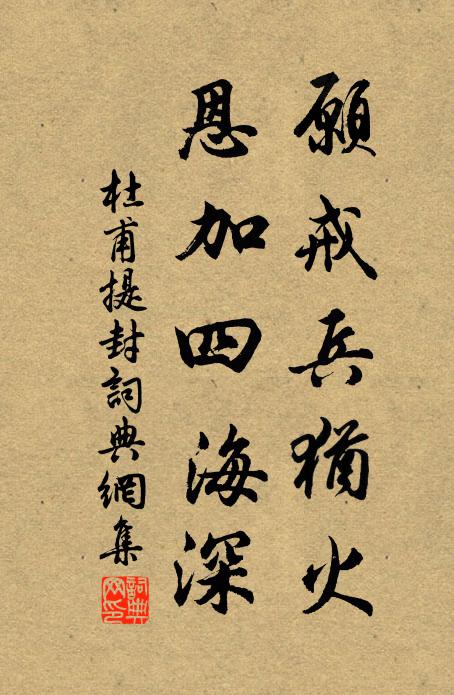 願戒兵猶火
恩加四海深
杜甫提封詞典網集
詞典網印